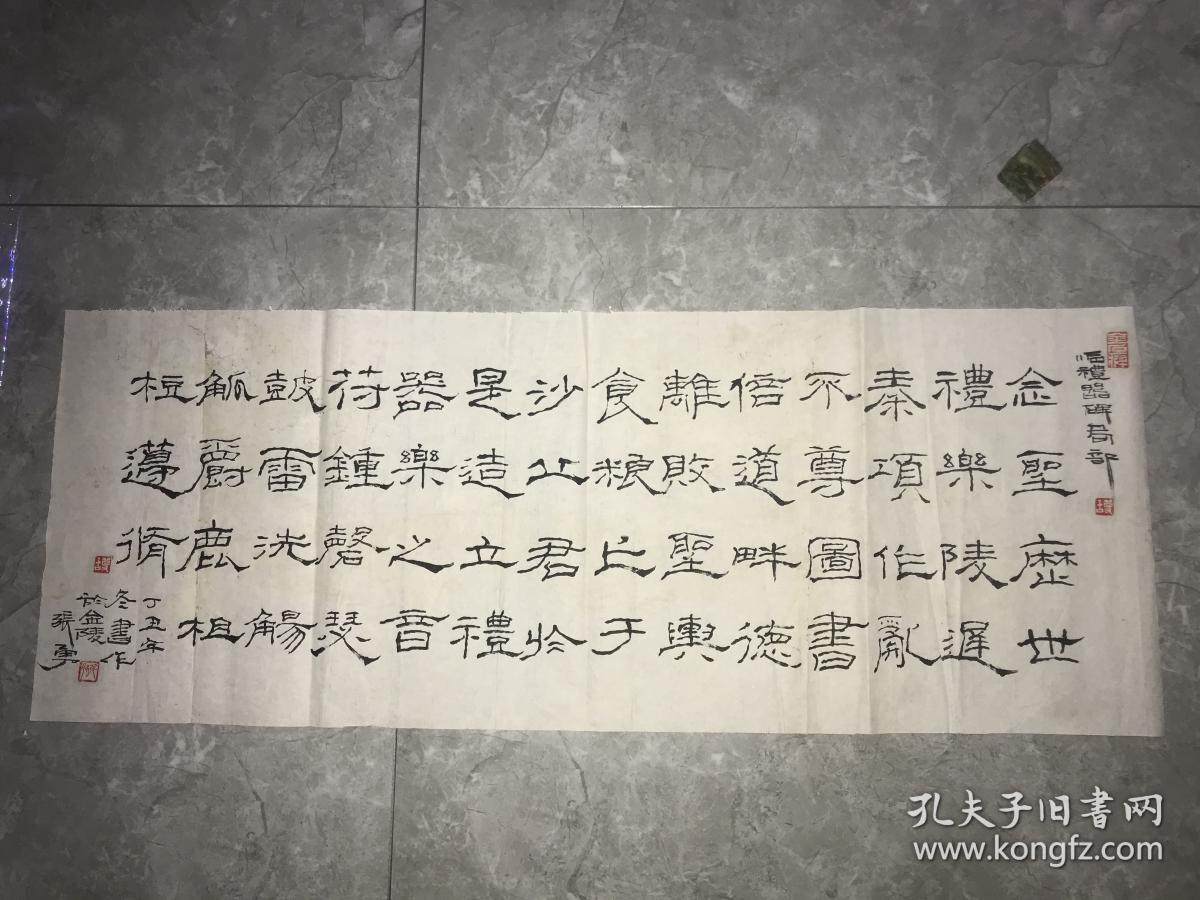 临禮器碑局部
念聖歷世
禮樂陵遲
秦項作亂
不尊圖書
倍道畔德
離敗聖輿
食粮亡于
沙丘君於
是造立禮
器樂之音
符鍾磬瑟
鼓雷洗觴
觚爵鹿柤
梪籩脩
丁丑年
冬書作
於金陵
張勇
孔夫子旧书网
www.kongfz.com